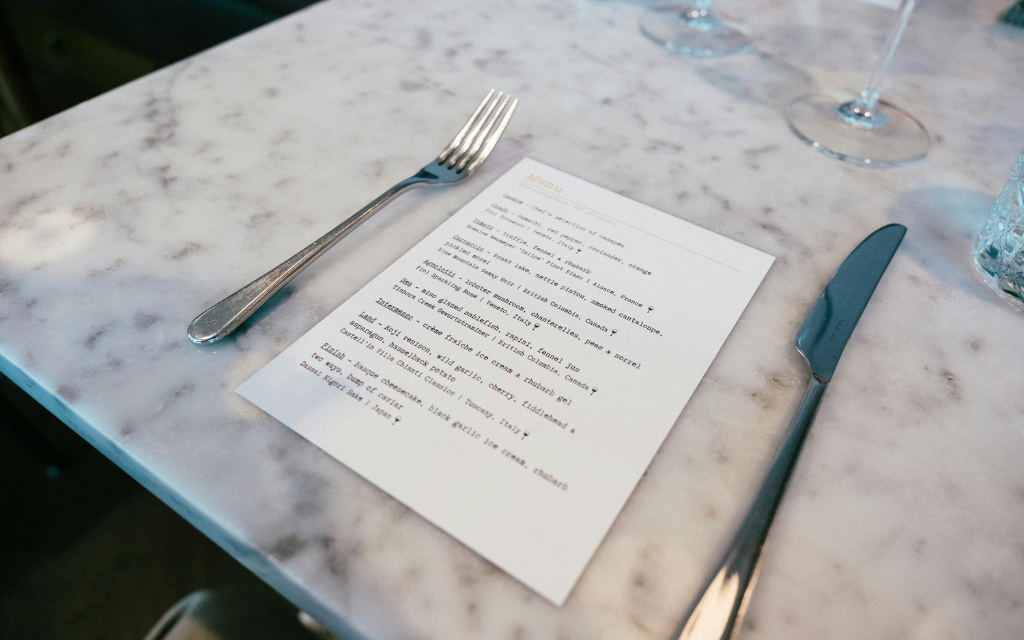 Menu
Canapé - Chef's selection of canapés
Crudo - hamachi, red pepper, coriander, orange
Fiol Prosecco | Veneto, Italy
Tomato - truffle, fennel & rhubarb
Domaine Neumeyer "Tulipe" Pinot Blanc | Alsace, France
Carpaccio - brant lake, nettle pistou, smoked cantaloupe,
pickled morel
Blue Mountain Gamay Noir | British Columbia, Canada
Agnolotti - lobster mushroom, chanterelles, peas & sorrel
Fiol Sparkling Rosé | Veneto, Italy
Sea - miso glazed sablefish, rapini, fennel jus
Tinhorn Creek Gewurtztraminer | British Columbia, Canada
Intermezzo - crème fraîche ice cream & rhubarb gel
Land - Koji venison, wild garlic, cherry, fiddlehead &
asparagus, hasselback potato
Castell'in Villa Chianti Classico | Tuscany, Italy
Finish - basque cheesecake, black garlic ice cream, rhubarb
two ways, bump of caviar
Dassai Nigori Sake | Japan